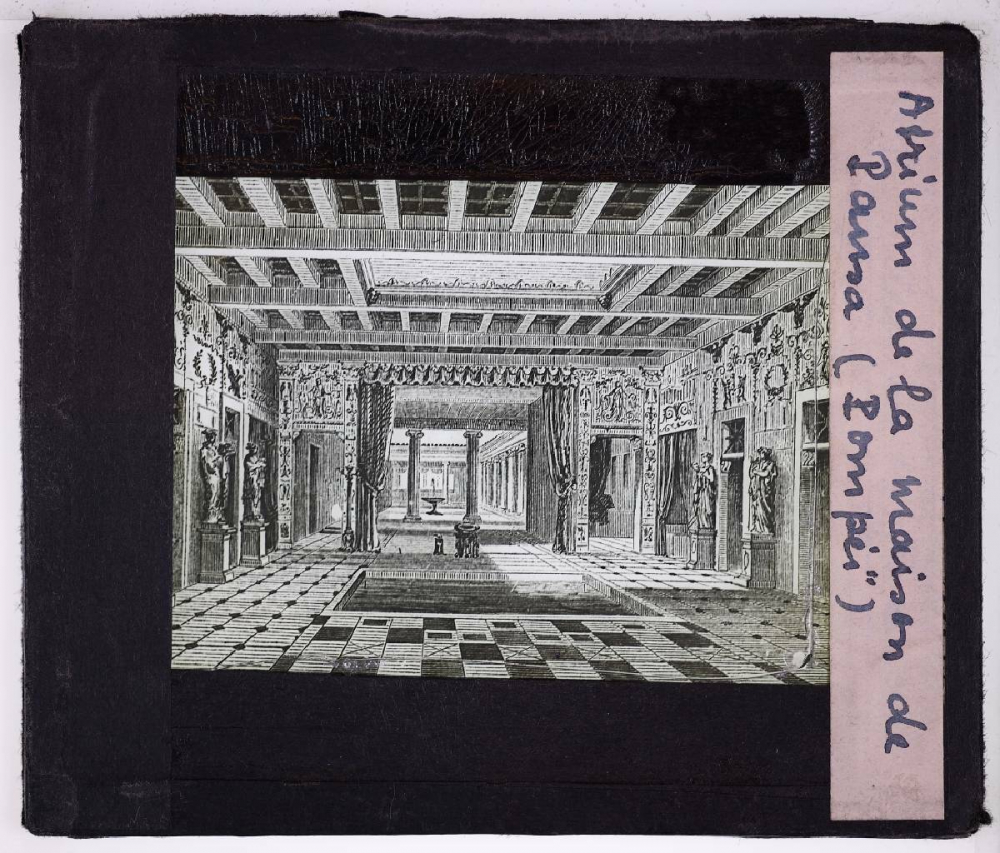 Atrium de la maison de
Pansa (Pompéi)